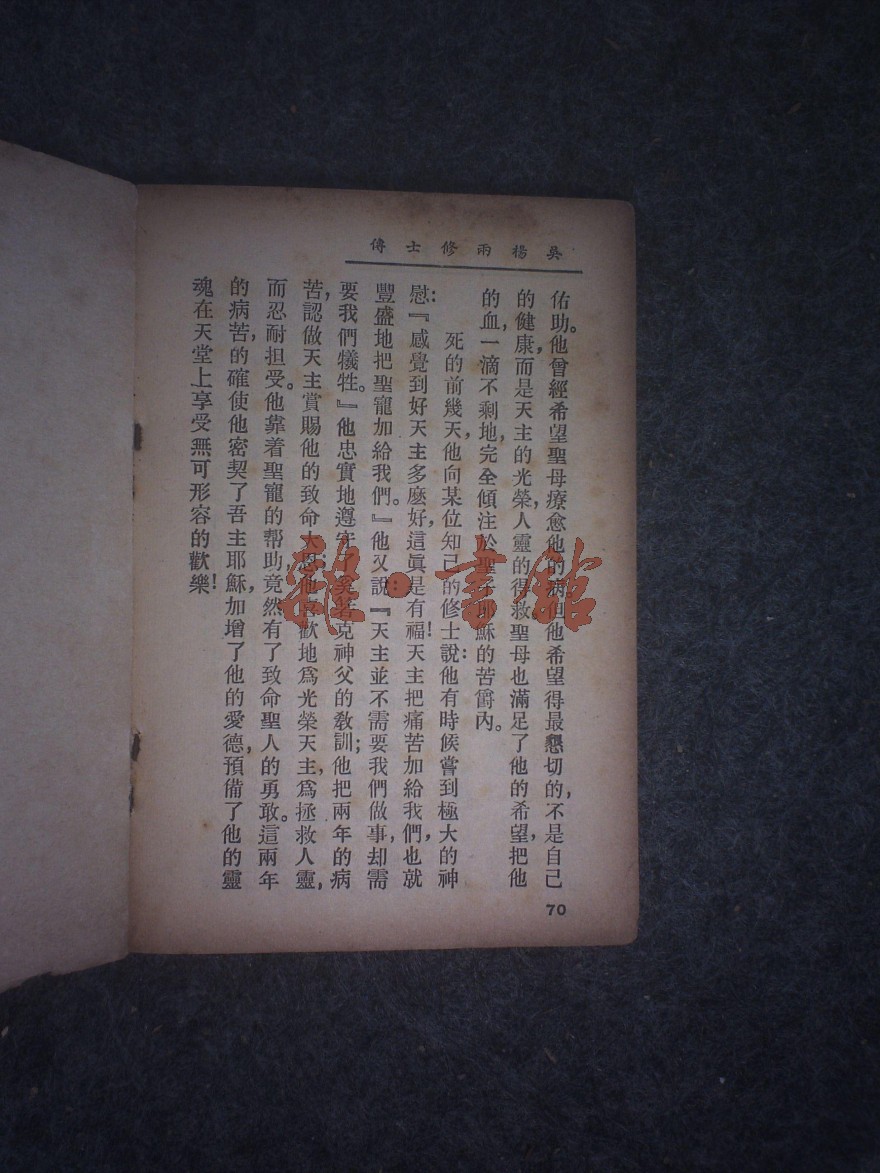 吳楊兩修士傳
佑助。他曾經希望聖母療愈他的病,但他希望得最懇切的,不是自己
的健康,而是天主的光榮人靈的得救,聖母也滿足了他的希望,把他
的血,一滴不剩地,完全傾注於聖子耶穌的苦爵內。
死的前幾天,他向某位知己的修士說:他有時候嘗到極大的神
慰:『感覺到好天主多麽好,這眞是有福!天主把痛苦加給我們,也就
豐盛地把聖寵加給我們。』他又說:『天主並不需要我們做事,却需
要我們犧牲。』他忠實地遵守了奚若克神父的敎訓;他把兩年的病
苦,認做天主賞賜他的致命大恩;他喜歡地爲光榮天主,爲拯救人靈,
而忍耐担受。他靠着聖寵的帮助,竟然有了致命聖人的勇敢。這兩年
的病苦,的確使他密契了吾主耶穌,加增了他的愛德,預備了他的靈
魂在天堂上享受無可形容的歡樂!
70
雜·書館